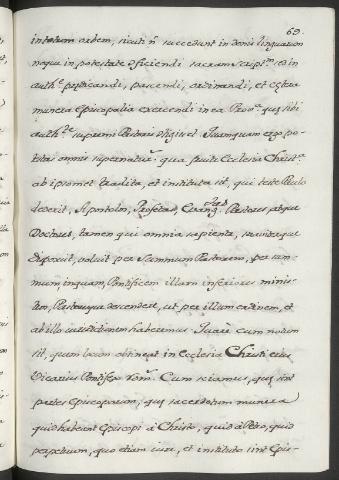 69.
in totum orbem, sicuti n̄ succedunt in donis linguarum
neque in potestate conficiendi sacram Script.ᵐ et in
auth.ᵉ predicandi, pascendi, ordinandi, et cetera
munera Episcopalia exercendi in ea Prov.ª que sibi
auth.ᵗᵉ supremi Pastoris
Quamquam ergo po-
testas omnis supernatur.ˢ qua Ecclesia Christ.ª
ab ipsomet tradita, et instituta sit, qui teste Paulo
dederit, Apostolos, Profetas, Evang.ᵗᵃˢ Pastores atque
Doctores, tamen qui omnia sapienter, suaviterque
disposuit, voluit per Summum Pastorem, per sum-
mum, inquam, Pontificem illam in inferiores minis-
tros, Pastoresque descendere, ut per illum ordinem, et
ab illo institutionem haberemus. Quare cum notum
sit, quem locum obtineat in Ecclesia Christi eius
Vicarius Pontifex Rom.ˢ Cum sciamus, que sint
partes Episcoporum, que sacerdotum munera
quid habeant Episcopi à Christo, quid à Petro, quid
perpetuum, quo etiam iure, et instituto sint Epis-